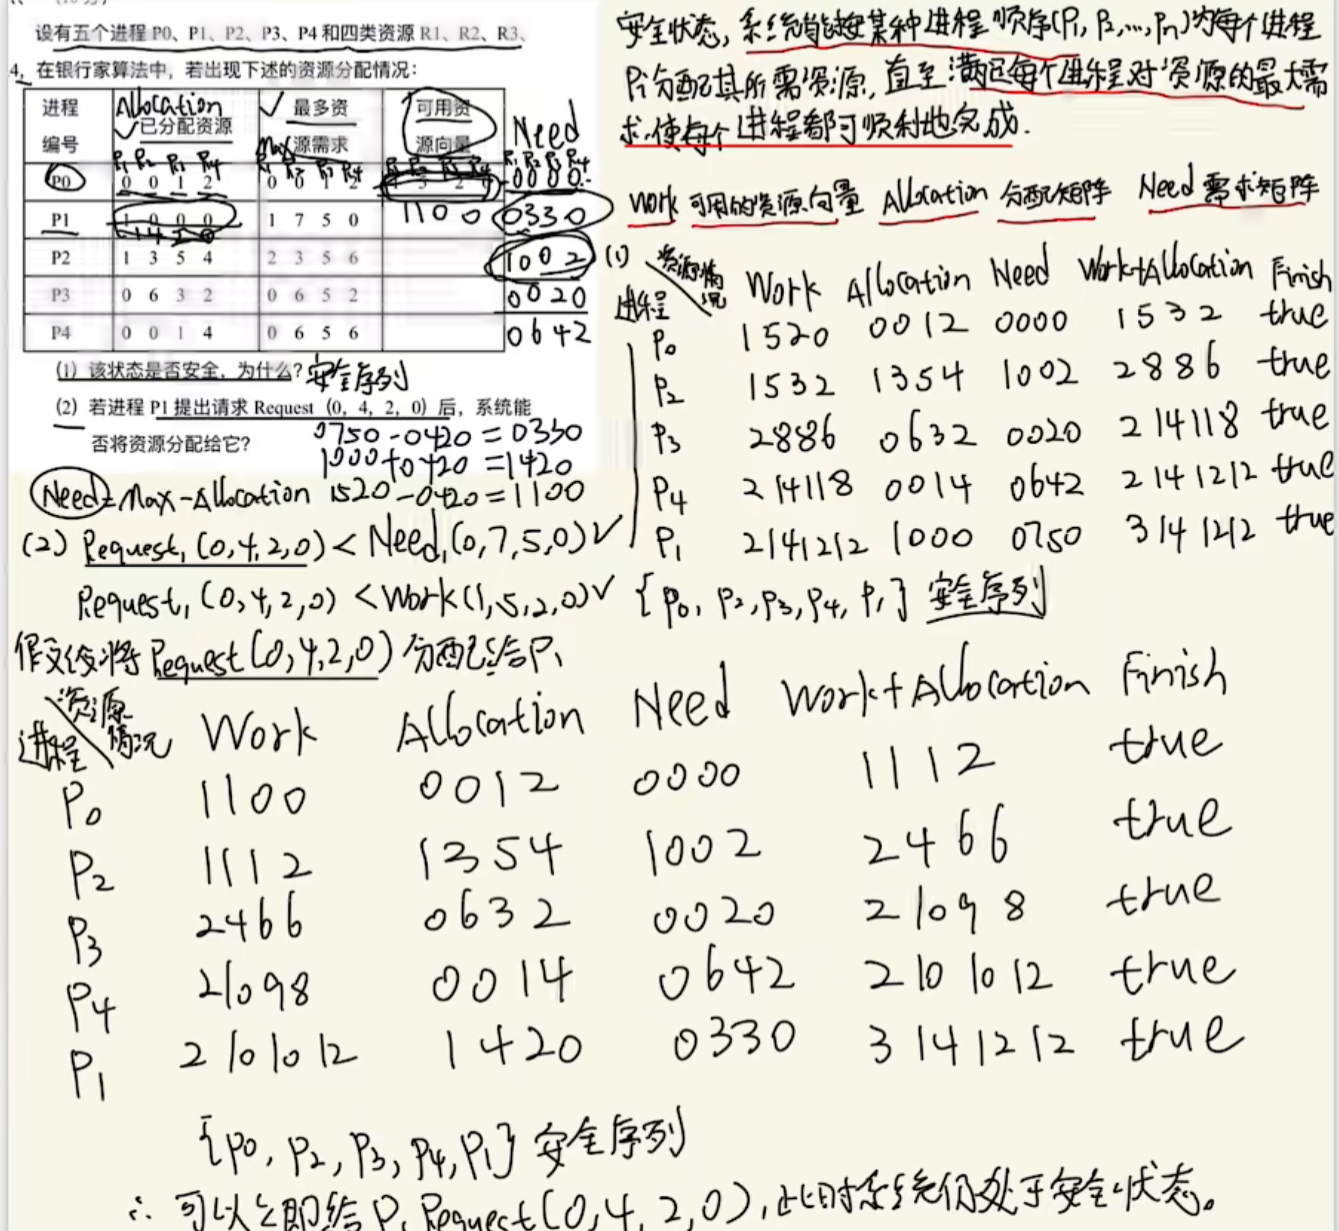 设有五个进程 P0、P1、P2、P3、P4 和四类资源 R1、R2、R3、
4，在银行家算法中，若出现下述的资源分配情况：
进程 编号 Allocation 已分配资源 Max 最多资源需求 可用资源向量 Need
R1 R2 R3 R4
P0 0 0 1 2 0 0 1 2 1 5 2 0 0000
P1 1 0 0 0 1 7 5 0 1100 0330
1420
P2 1 3 5 4 2 3 5 6 1002
P3 0 6 3 2 0 6 5 2 0020
P4 0 0 1 4 0 6 5 6 0642
(1) 该状态是否安全，为什么? 安全序列
(2) 若进程 P1 提出请求 Request（0，4，2，0）后，系统能
否将资源分配给它?
0750-0420=0330
1000+0420=1420
Need=Max-Allocation 1520-0420=1100
(2) Request₁(0,4,2,0)<Need₁(0,7,5,0)√
Request₁(0,4,2,0)<Work(1,5,2,0)√
假设将Request(0,4,2,0)分配给P₁
安全状态,系统能按某种进程顺序(P₁,P₂,…,Pn)为每个进程
Pi分配其所需资源,直至满足每个进程对资源的最大需
求,使每个进程都可顺利地完成.
Work 可用的资源向量 Allocation 分配矩阵 Need 需求矩阵
(1) 资源情况 进程 Work Allocation Need Work+Allocation Finish
P₀ 1520 0012 0000 1532 true
P₂ 1532 1354 1002 2886 true
P₃ 2886 0632 0020 214118 true
P₄ 214118 0014 0642 2141212 true
P₁ 2141212 1000 0750 3141212 true
{P₀,P₂,P₃,P₄,P₁} 安全序列
资源情况 进程 Work Allocation Need Work+Allocation Finish
P₀ 1100 0012 0000 1112 true
P₂ 1112 1354 1002 2466 true
P₃ 2466 0632 0020 21098 true
P₄ 21098 0014 0642 2101012 true
P₁ 2101012 1420 0330 3141212 true
{P0,P₂,P₃,P₄,P₁} 安全序列
∴可以立即给P₁ Request(0,4,2,0),此时系统仍处于安全状态。